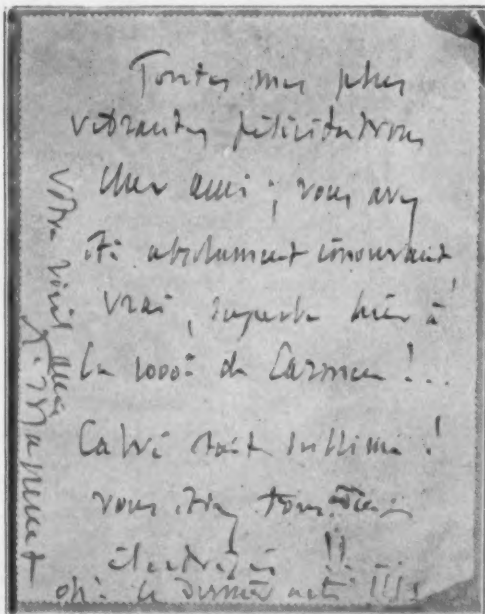 Toutes mes plus
vibrantes félicitations
cher ami ; vous avez
été absolument émouvant,
vrai, superbe hier à
la 1000e de Carmen !...
Calvé était sublime !
vous étiez tous deux
électrisés !!...
oh ! le dernier acte !!!!
Votre vieil ami
J. Massenet